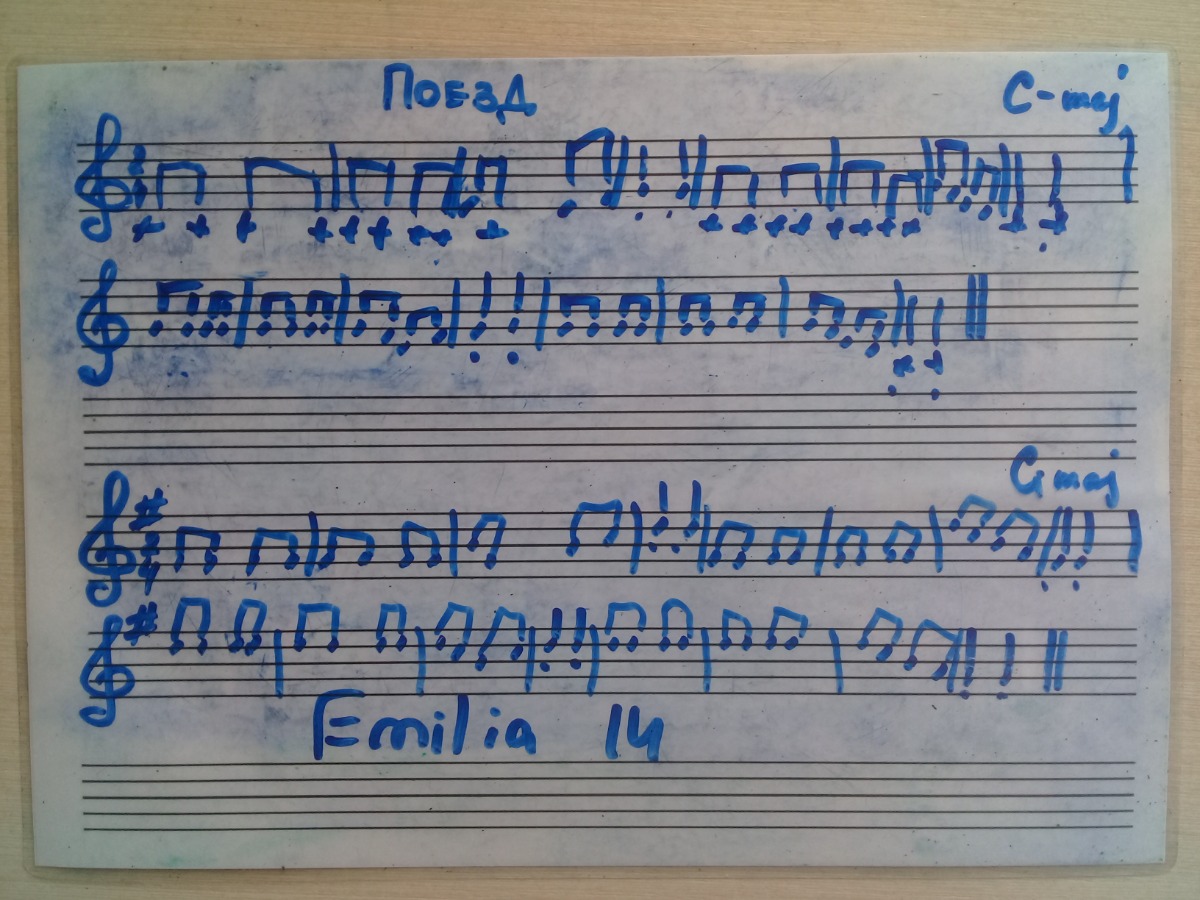 Поезд
C-maj
G maj
Emilia 14